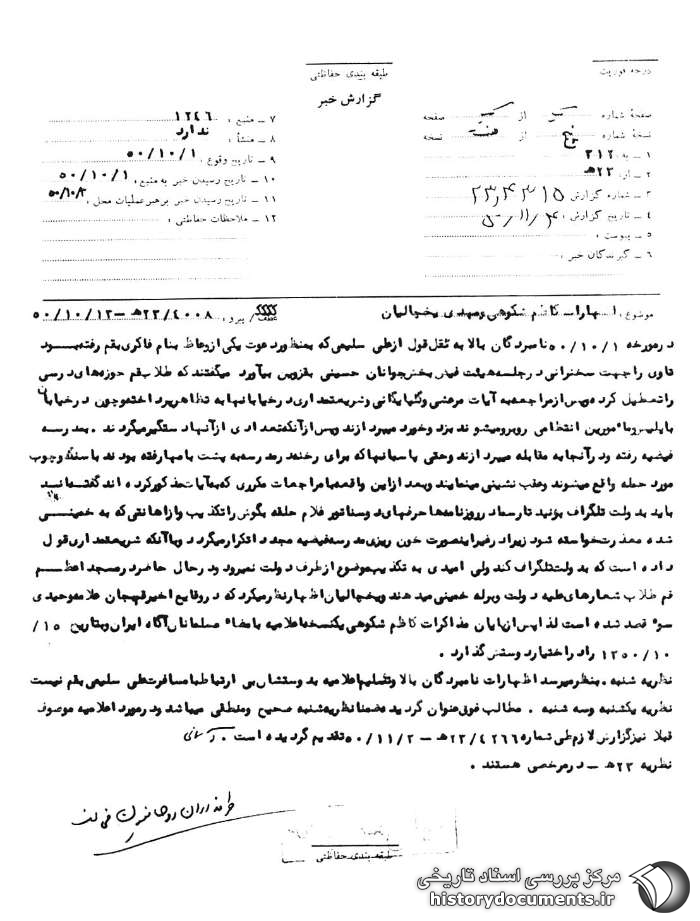 درجه فوریت
طبقه بندی حفاظتی
گزارش خبر
صفحهٔ شماره از صفحه
نسخهٔ شماره پنج از هفت نسخه
۱ – به: ۳۱۲
۲ – از: ۲۳هـ
۳ – شماره گزارش
۴ – تاریخ گزارش:
۵ – پیوست:
۶ – گیرندگان خبر:
۷ – منبع: ۱۲۴۶
۸ – منشأ: ندارد
۹ – تاریخ وقوع: ۵۰/۱۰/۱
۱۰ – تاریخ رسیدن خبر به منبع: ۵۰/۱۰/۱
۱۱ – تاریخ رسیدن خبر برهبر عملیات محل: ۵۰/۱۰/۲
۱۲ – ملاحظات حفاظتی:
موضوع: اظهارات کاظم شکوهی ومهدی یخچالیان
عطف / پیرو: ۲۳/۴۰۰۸هـ – ۵۰/۱۰/۱۲
درمورخه ۵۰/۱۰/۱ نامبردگان بالا به نقل قول ازعلی سلیمی که بمنظور دعوت یکی ازوعاظ بنام فاکری بقم رفته بـود
تاوی را جهت سخنرانی درجلسه هیئت فیض بخش جوانان حسینی بقزوین بیآورد میگفتند که طلاب قم حوزه های درسی
را تعطیل کرده وپس از مراجعه به آیات مرعشی وگلپایگانی وشریعتمداری درخیابانها به تظاهر پرداخته وچون درخیابان
با پلیس و مامورین انتظامی روبرو میشوند بزد وخورد میپردازند وپس از آنکه تعدادی از آنها دستگیر میگردند . بمدرسه
فیضیه رفته ودرآنجا به مقابله میپردازند وحتی پاسبانها که برای رخنه درمدرسه به پشت بامها رفته بودند با سنگ وچوب
مورد حمله واقع میشوند وعقب نشینی مینمایند وبعد از این واقعه با مراجعات مکرری که به آیات مذکور کرده اند گفته اند
باید به دولت تلگراف بزنید تا رسما در روزنامه ها حرفهای دوسناتور غلام حلقه بگوش را تکذیب واز اهانتی که به خمینــی
شده معذرت خواسته شود زیرا درغیر اینصورت خون ریزی مدرسه فیضیه مجددا تکرار میگردد وبا آنکه شریعتمداری قول
داده است که به دولت تلگراف کند ولی امیدی به تکذیب موضوع از طرف دولت نمیرود ودرحال حاضر درمسجد اعظــم
قم طلاب شعارهای علیه دولت وبرله خمینی میدهند ویخچالیان اظهار نظر میکرد که در وقایع اخیر قم بجان علامه وحیدی
سوء قصد شده است لذا پس از پایان مذاکرات کاظم شکوهی یکنسخه اعلامیه با مضاء مسلمانان آگاه ایران وبتاریخ ۱۵/
۱۳۵۰/۱۰ را در اختیار دوستش گذارد .
نظریه شنبه . بنظر میرسد اظهارات نامبردگان بالا وتسلیم اعلامیه به دوستشان بی ارتباط با مسافرت علی سلیمی بقم نیست
نظریه یکشنبه وسه شنبه . مطالب فوق عنوان گردیده ضمنا نظریه شنبه صحیح ومنطقی میباشد ودرمورد اعلامیه موصوف
قبلا نیز گزارش لازم طی شماره ۲۳/۴۲۶۶هـ – ۵۰/۱۱/۲ تقدیم گردیده است .
نظریه ۲۳هـ – درمرخصی هستند .
طبقه بندی حفاظتی
مرکز بررسی اسناد تاریخی
historydocuments.ir